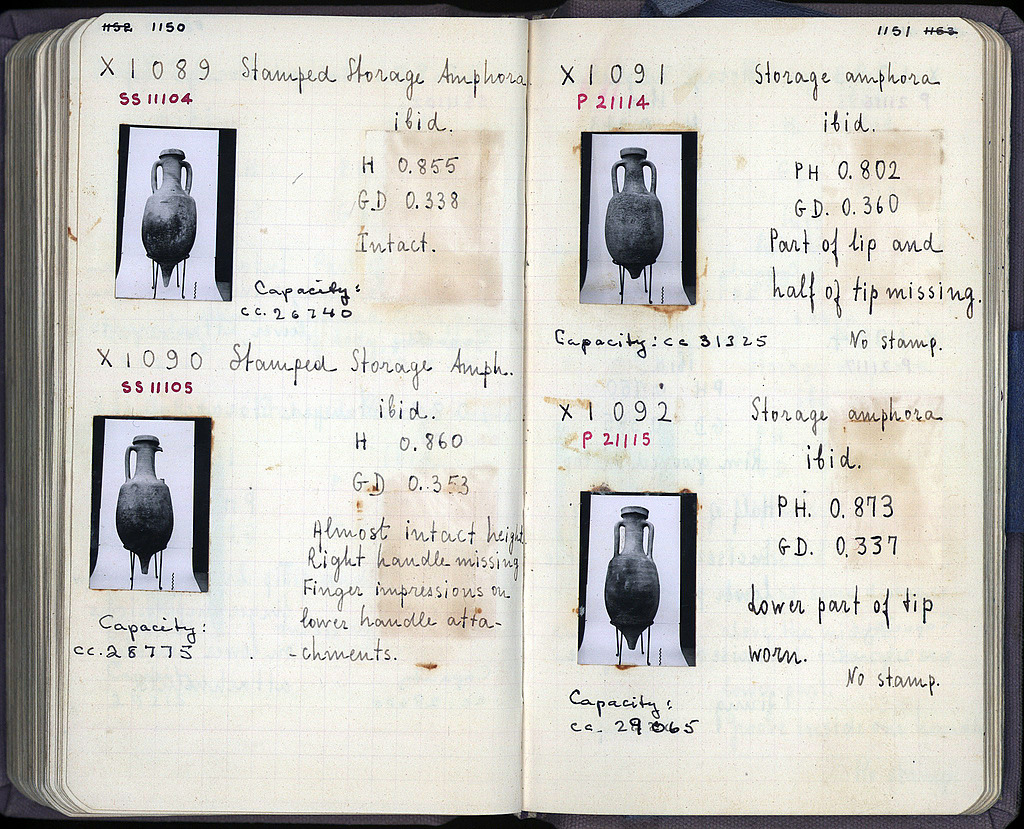 1152 1150
X 1089 Stamped Storage Amphora
SS 11104
ibid.
H 0.855
GD 0.338
Intact.
Capacity:
cc. 26740
X 1090 Stamped Storage Amph.
SS 11105
ibid.
H 0.860
GD 0.353
Almost intact height
Right handle missing
Finger impressions on
lower handle atta-
-chments.
Capacity:
cc. 28775
1151 1153
X 1091 Storage amphora
P 21114
ibid.
PH 0.802
GD. 0.360
Part of lip and
half of tip missing.
Capacity: cc 31325
No stamp.
X 1092 Storage amphora
P 21115
ibid.
PH. 0.873
GD. 0.337
Lower part of tip
worn.
No stamp.
Capacity:
cc. 29065